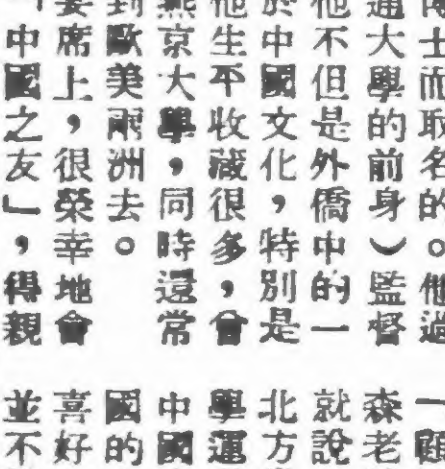 士而取名的。他過
通大學的前身）監督
他不但是外僑中的一
於中國文化，特別是
他生平收藏很多，會
燕京大學，同時還常
到歐美兩洲去。
宴席上，很榮幸地會
「中國之友」，得親
一
森老
就說
北方
學運
中國
國的
喜好
並不